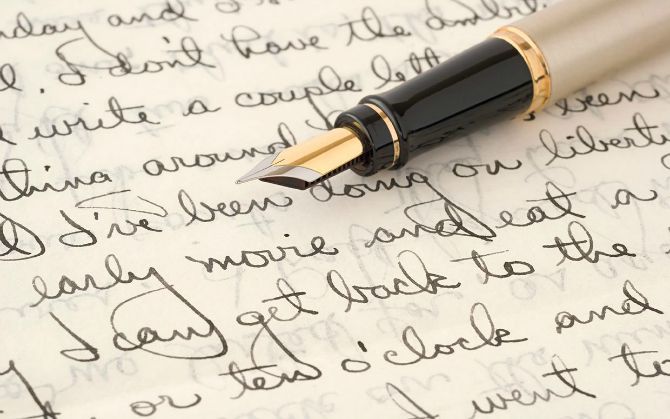 day and I
I don't have the ambiti
write a couple lett
thing around been
I've been doing on liberty
early movie and eat a
I can get back to the
or ten o'clock and
I went to